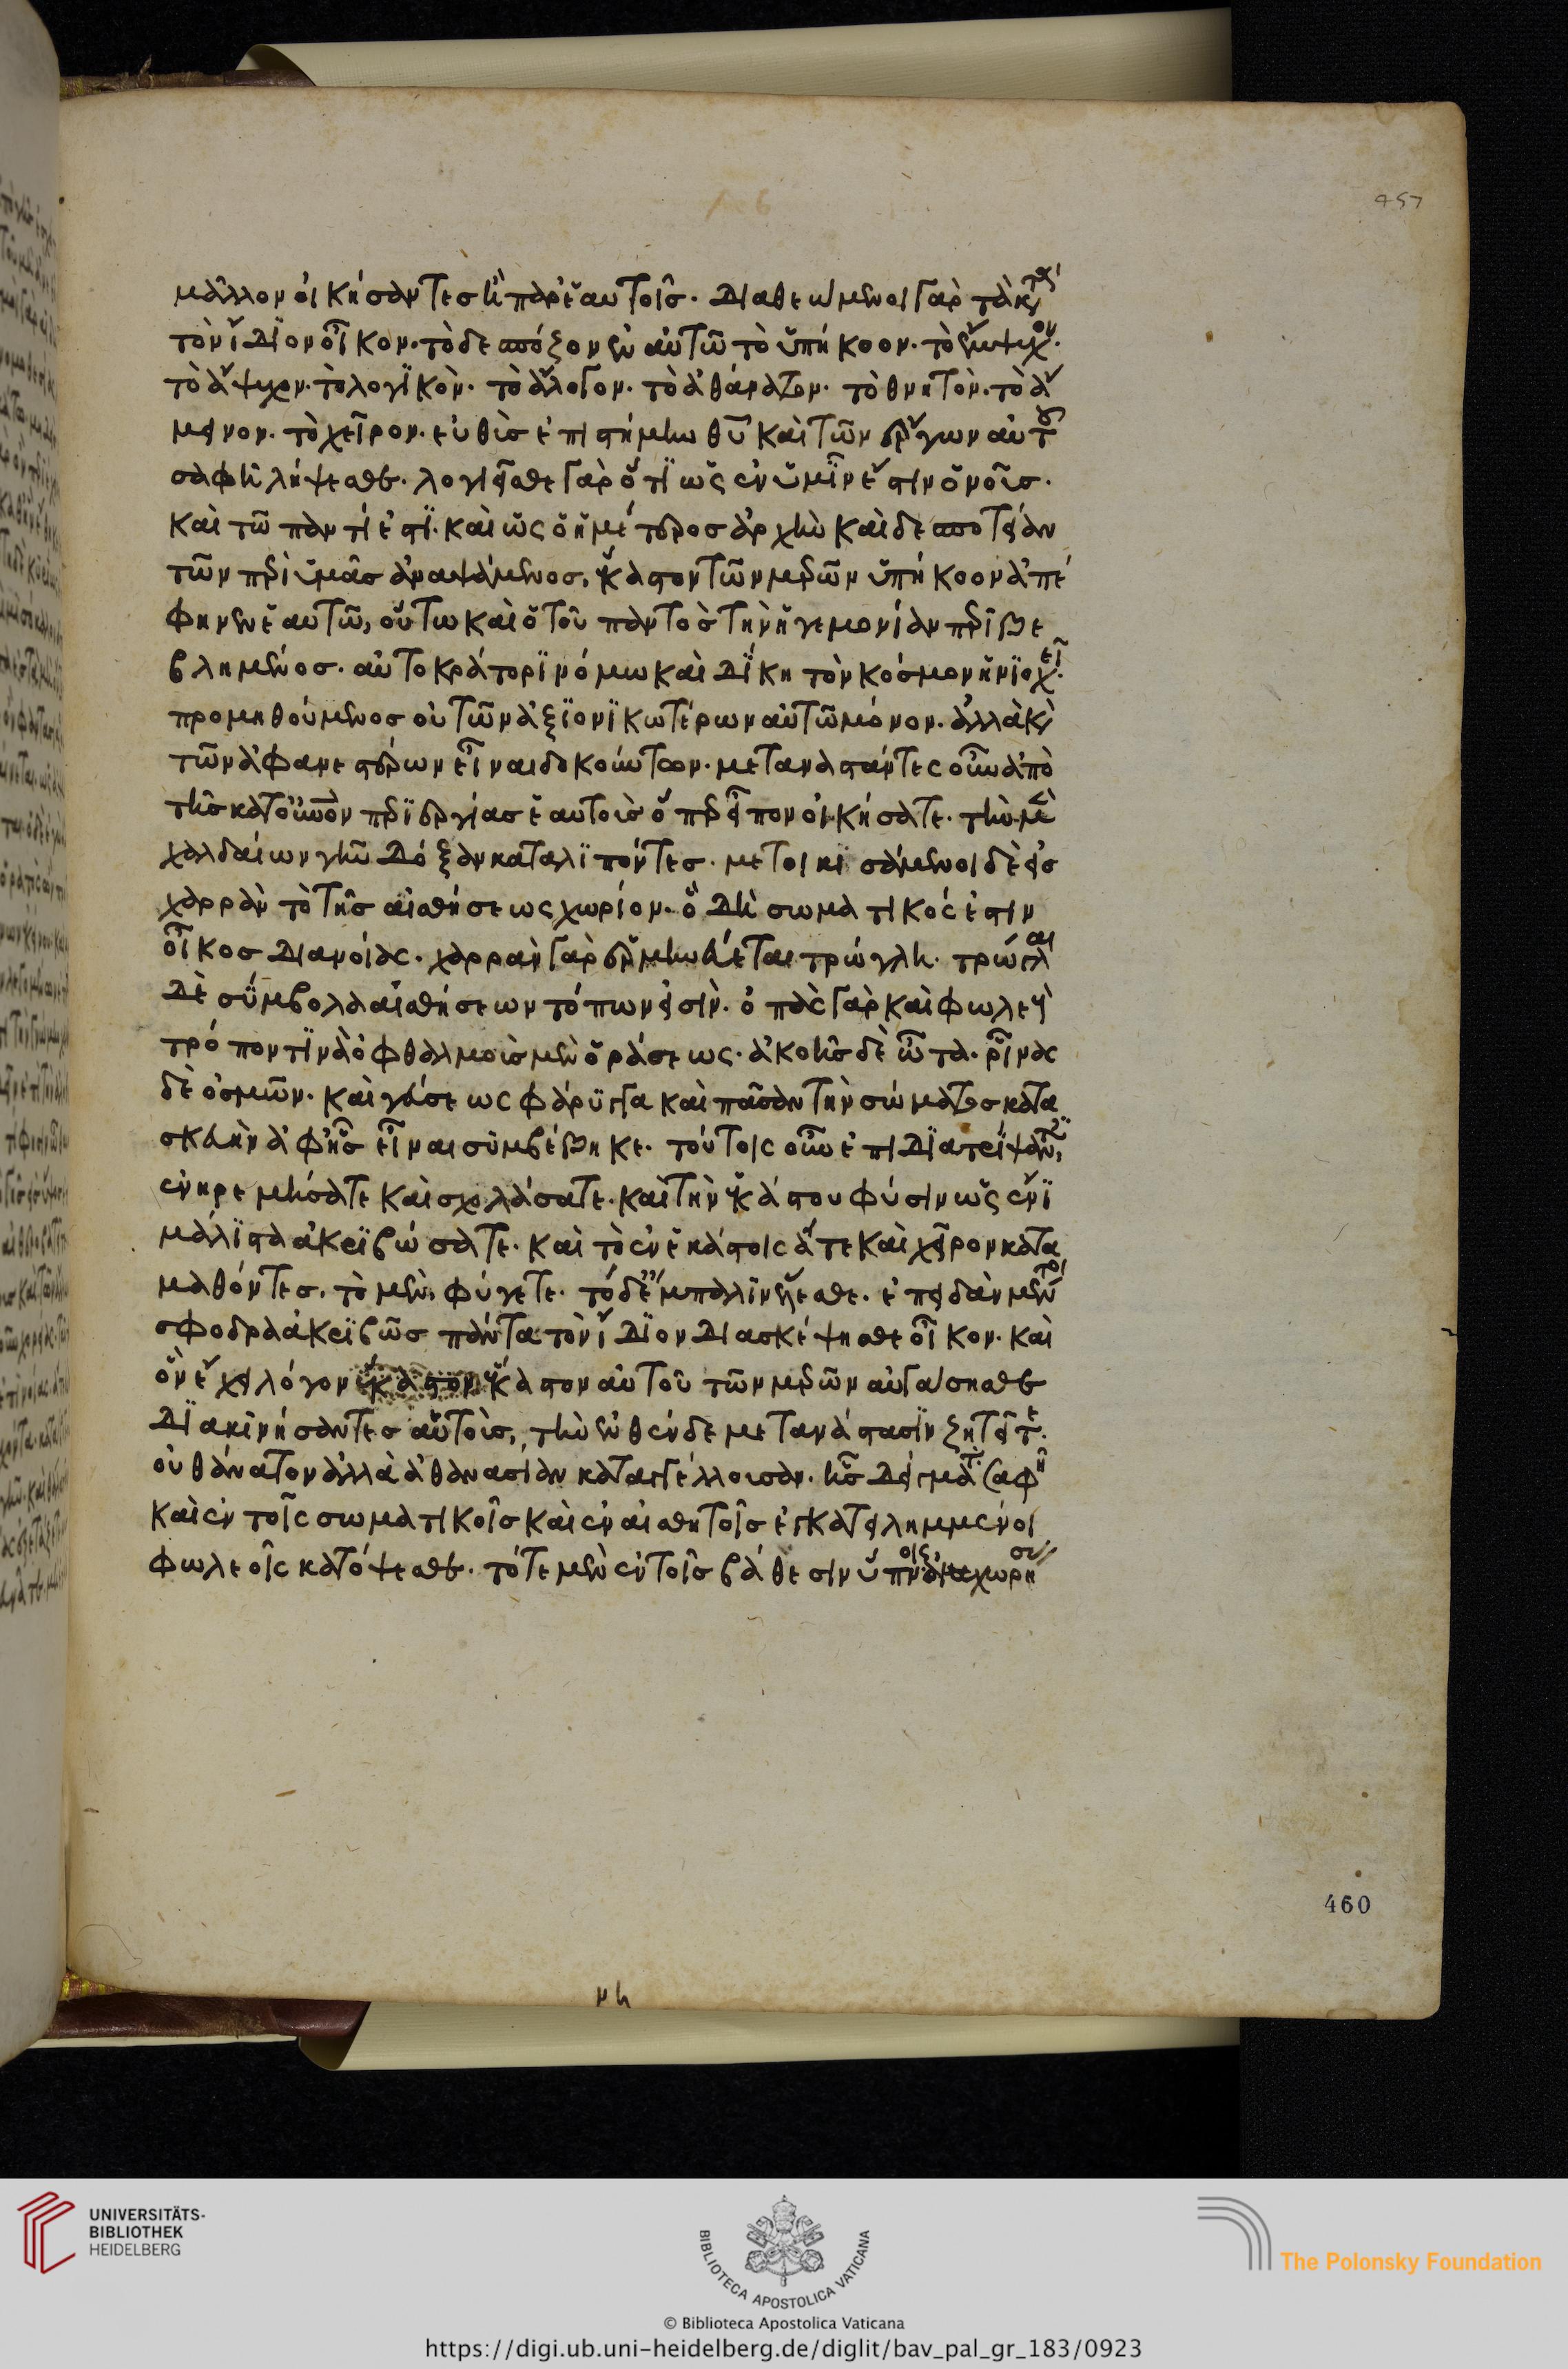 μᾶλλον οἰκήσαντες ἢ παρ' ἑαυτοῖς. διαθεώμενοι γὰρ τὰ κατὰ
τὸν ἴδιον οἶκον. τὸ δεσπόζον ἐν αὐτῶ τὸ ὑπήκοον. τὸ ἔμψυχον.
τὸ ἄψυχον. τὸ λογικὸν. τὸ ἄλογον. τὸ ἀθάνατον. τὸ θνητὸν. τὸ ἄ
μεινον. τὸ χεῖρον. εὐθὺς ἐπιστήμην θυ καὶ τῶν ἔργων αὐτοῦ
σαφῆ λήψεσθε. λογιεῖσθε γὰρ ὅτι ὡς ἐν ὑμῖν ἔστιν ὁ νοῦς.
καὶ τῶ παντί ἐστι. καὶ ὡς ὁ ἡμέτερος ἀρχὴν καὶ δεσποτείαν
τῶν περὶ ὑμᾶς ἀναψάμενος, ἕκαστον τῶν μερῶν ὑπήκοον ἀπέ
φηνεν ἑαυτῶ, οὕτω καὶ ὁ τοῦ παντὸς τὴν ἡγεμονίαν περιβε
βλημένος. αὐτοκράτορι νόμω καὶ δίκη τὸν κόσμον ἡνιοχεῖ.
προμηθούμενος οὐ τῶν ἀξιονικωτέρων αὐτῶ μόνον. ἀλλὰ καὶ
τῶν ἀφανεστέρων εἶναι δοκούντων. μεταναστάντες οὖν ἀπὸ
τῆς κατ' οὐνὸν περιεργίας ἑαυτοὺς ὅπερ εἶπον οἰκήσατε. τὴν μὲν
χαλδαίων γῆν δόξαν καταλιπόντες. μετοικισάμενοι δὲ εἰς
χαρρὰν τὸ τῆς αἰσθήσεως χωρίον. ὃ δὴ σωματικός ἐστιν
οἶκος διανοίας. χαρρὰν γὰρ ἑρμηνεύεται τρώγλη. τρώγλαι
δὲ σύμβολα αἰσθήσεων τόπων εἰσὶν. ὀπὰς γὰρ καὶ φωλεοὺ
τρόπον τινὰ ὀφθαλμοὺς μὲν ὁράσεως. ἀκοῆς δὲ ὦτα. ῥῖνας
δὲ ὀσμῶν. καὶ γεύσεως φάρυγγα καὶ πᾶσαν τὴν σώματος κατα
σκευὴν ἁφῆς εἶναι συμβέβηκε. τούτοις οὖν ἐπιδιατρίψαντες,
ἐνηρεμήσατε καὶ σχολάσατε. καὶ τὴν ἑκάστου φύσιν ὡς ἔνι
μάλιστα ἀκριβώσατε. καὶ τὸ ἐν ἑκάστοις ἄ τε καὶ χεῖρον κατα
μαθόντες. τὸ μὲν, φύγετε. τὸ δ' ἔμπαλιν ἕλεσθε. ἐπειδὰν μέντοι
σφοδρα ἀκριβῶς πάντα τὸν ἴδιον διασκέψησθε οἶκον. καὶ
ὃν ἔχει λόγον ἕκαστον ἕκαστον αὐτοῦ τῶν μερῶν αὐγάσησθε
διακινήσαντες αὑτοὺς, τὴν ἐνθένδε μετανάστασιν ζητεῖτε.
οὐ θάνατον ἀλλὰ ἀθανασίαν καταγγέλλουσαν. ἧς δείγματα σαφῆ
καὶ ἐν τοῖς σωματικοῖς καὶ ἐν αἰσθητοῖς ἐγκατειλημμένοι
φωλεοῖς κατόψεσθε. τότε μὲν ἐν τοῖς βάθεσιν ὕπνοις ἀναχωρη
μη
457
460
UNIVERSITÄTS-
BIBLIOTHEK
HEIDELBERG
BIBLIOTECA APOSTOLICA VATICANA
The Polonsky Foundation
© Biblioteca Apostolica Vaticana
https://digi.ub.uni-heidelberg.de/diglit/bav_pal_gr_183/0923